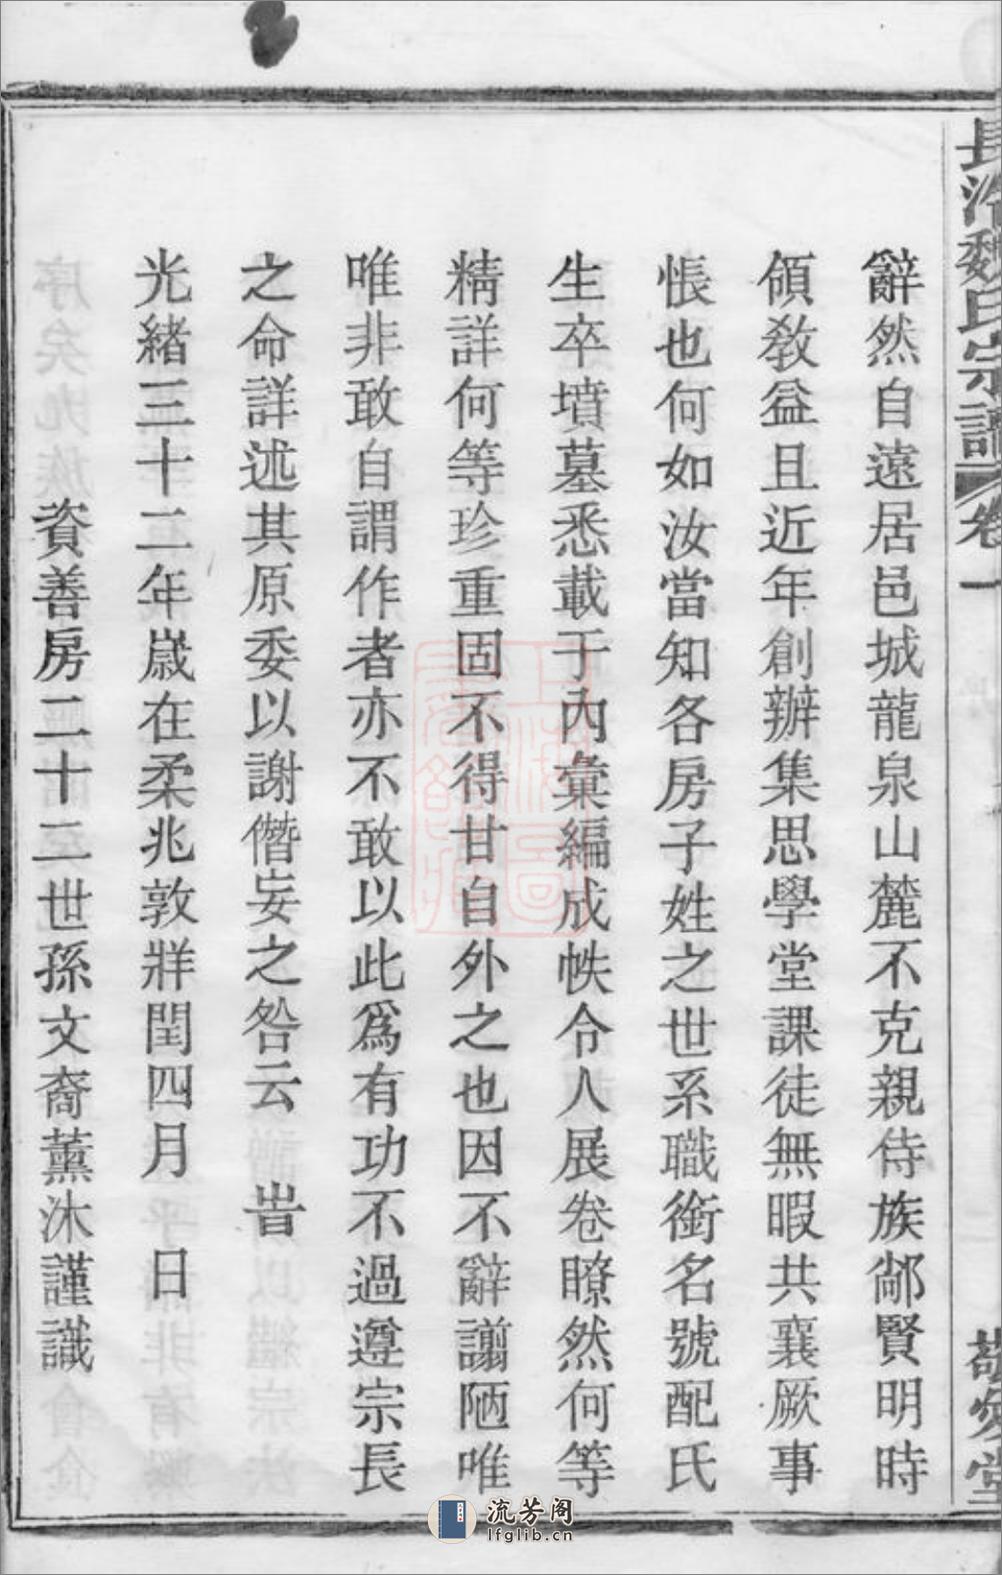 辭然自遠居邑城龍泉山麓不克親侍族鄰賢明時
領敎益且近年創辦集思學堂課徒無暇共襄厥事
悵也何如汝當知各房子姓之世系職銜名號配氏
生卒墳墓悉載于內彙編成帙令人展卷瞭然何等
精詳何等珍重固不得甘自外之也因不辭謭陋唯
唯非敢自謂作者亦不敢以此爲有功不過遵宗長
之命詳述其原委以謝僭妄之咎云　旹
光緒三十二年歲在柔兆敦牂閏四月　日
資善房二十二世孫文裔薰沐謹識
魏氏宗譜 卷一
流芳阁
lfglib.cn